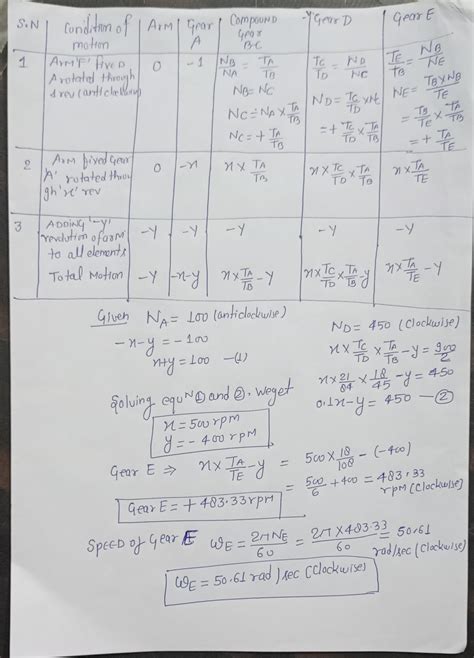 S.N Condition of motion Arm Gear A Compound Gear B-C Gear D Gear E
1 Arm 'F' fixed A rotated through 1 rev (anti clockwise) 0 -1
NB/NA = TA/TB
NB = NC
NC = NA × TA/TB
NC = + TA/TB
TC/TD = ND/NC
ND = TC/TD × NC
= + TC/TD × TA/TB
TE/TB = NB/NE
NE = TB×NB/TE
= TB/TE × TA/TB
= + TA/TE
2 Arm fixed Gear 'A' rotated through 'x' rev 0 -x x × TA/TB x × TC/TD × TA/TB x × TA/TE
3 ADDING '-y' revolution of arm to all elements -y -y -y -y -y
Total Motion -y -x-y x × TA/TB - y x × TC/TD × TA/TB - y x × TA/TE - y
Given NA = 100 (anticlockwise)
-x-y = -100
x+y = 100 -(1)
ND = 450 (Clockwise)
x × TC/TD × TA/TB - y = 900/2
x × 21/84 × 18/45 - y = 450
0.1x - y = 450 - ②
Solving equn ① and ②. we get
x = 500 rpm
y = - 400 rpm
Gear E ⇒ x × TA/TE - y = 500 × 18/108 - (-400)
= 500/6 + 400 = 483.33 rpm (Clockwise)
Gear E = + 483.33 rpm
SPEED of Gear E ωE = 2πNE/60 = 2π × 483.33/60 = 50.61 rad/sec (Clockwise)
ωE = 50.61 rad/sec (Clockwise)